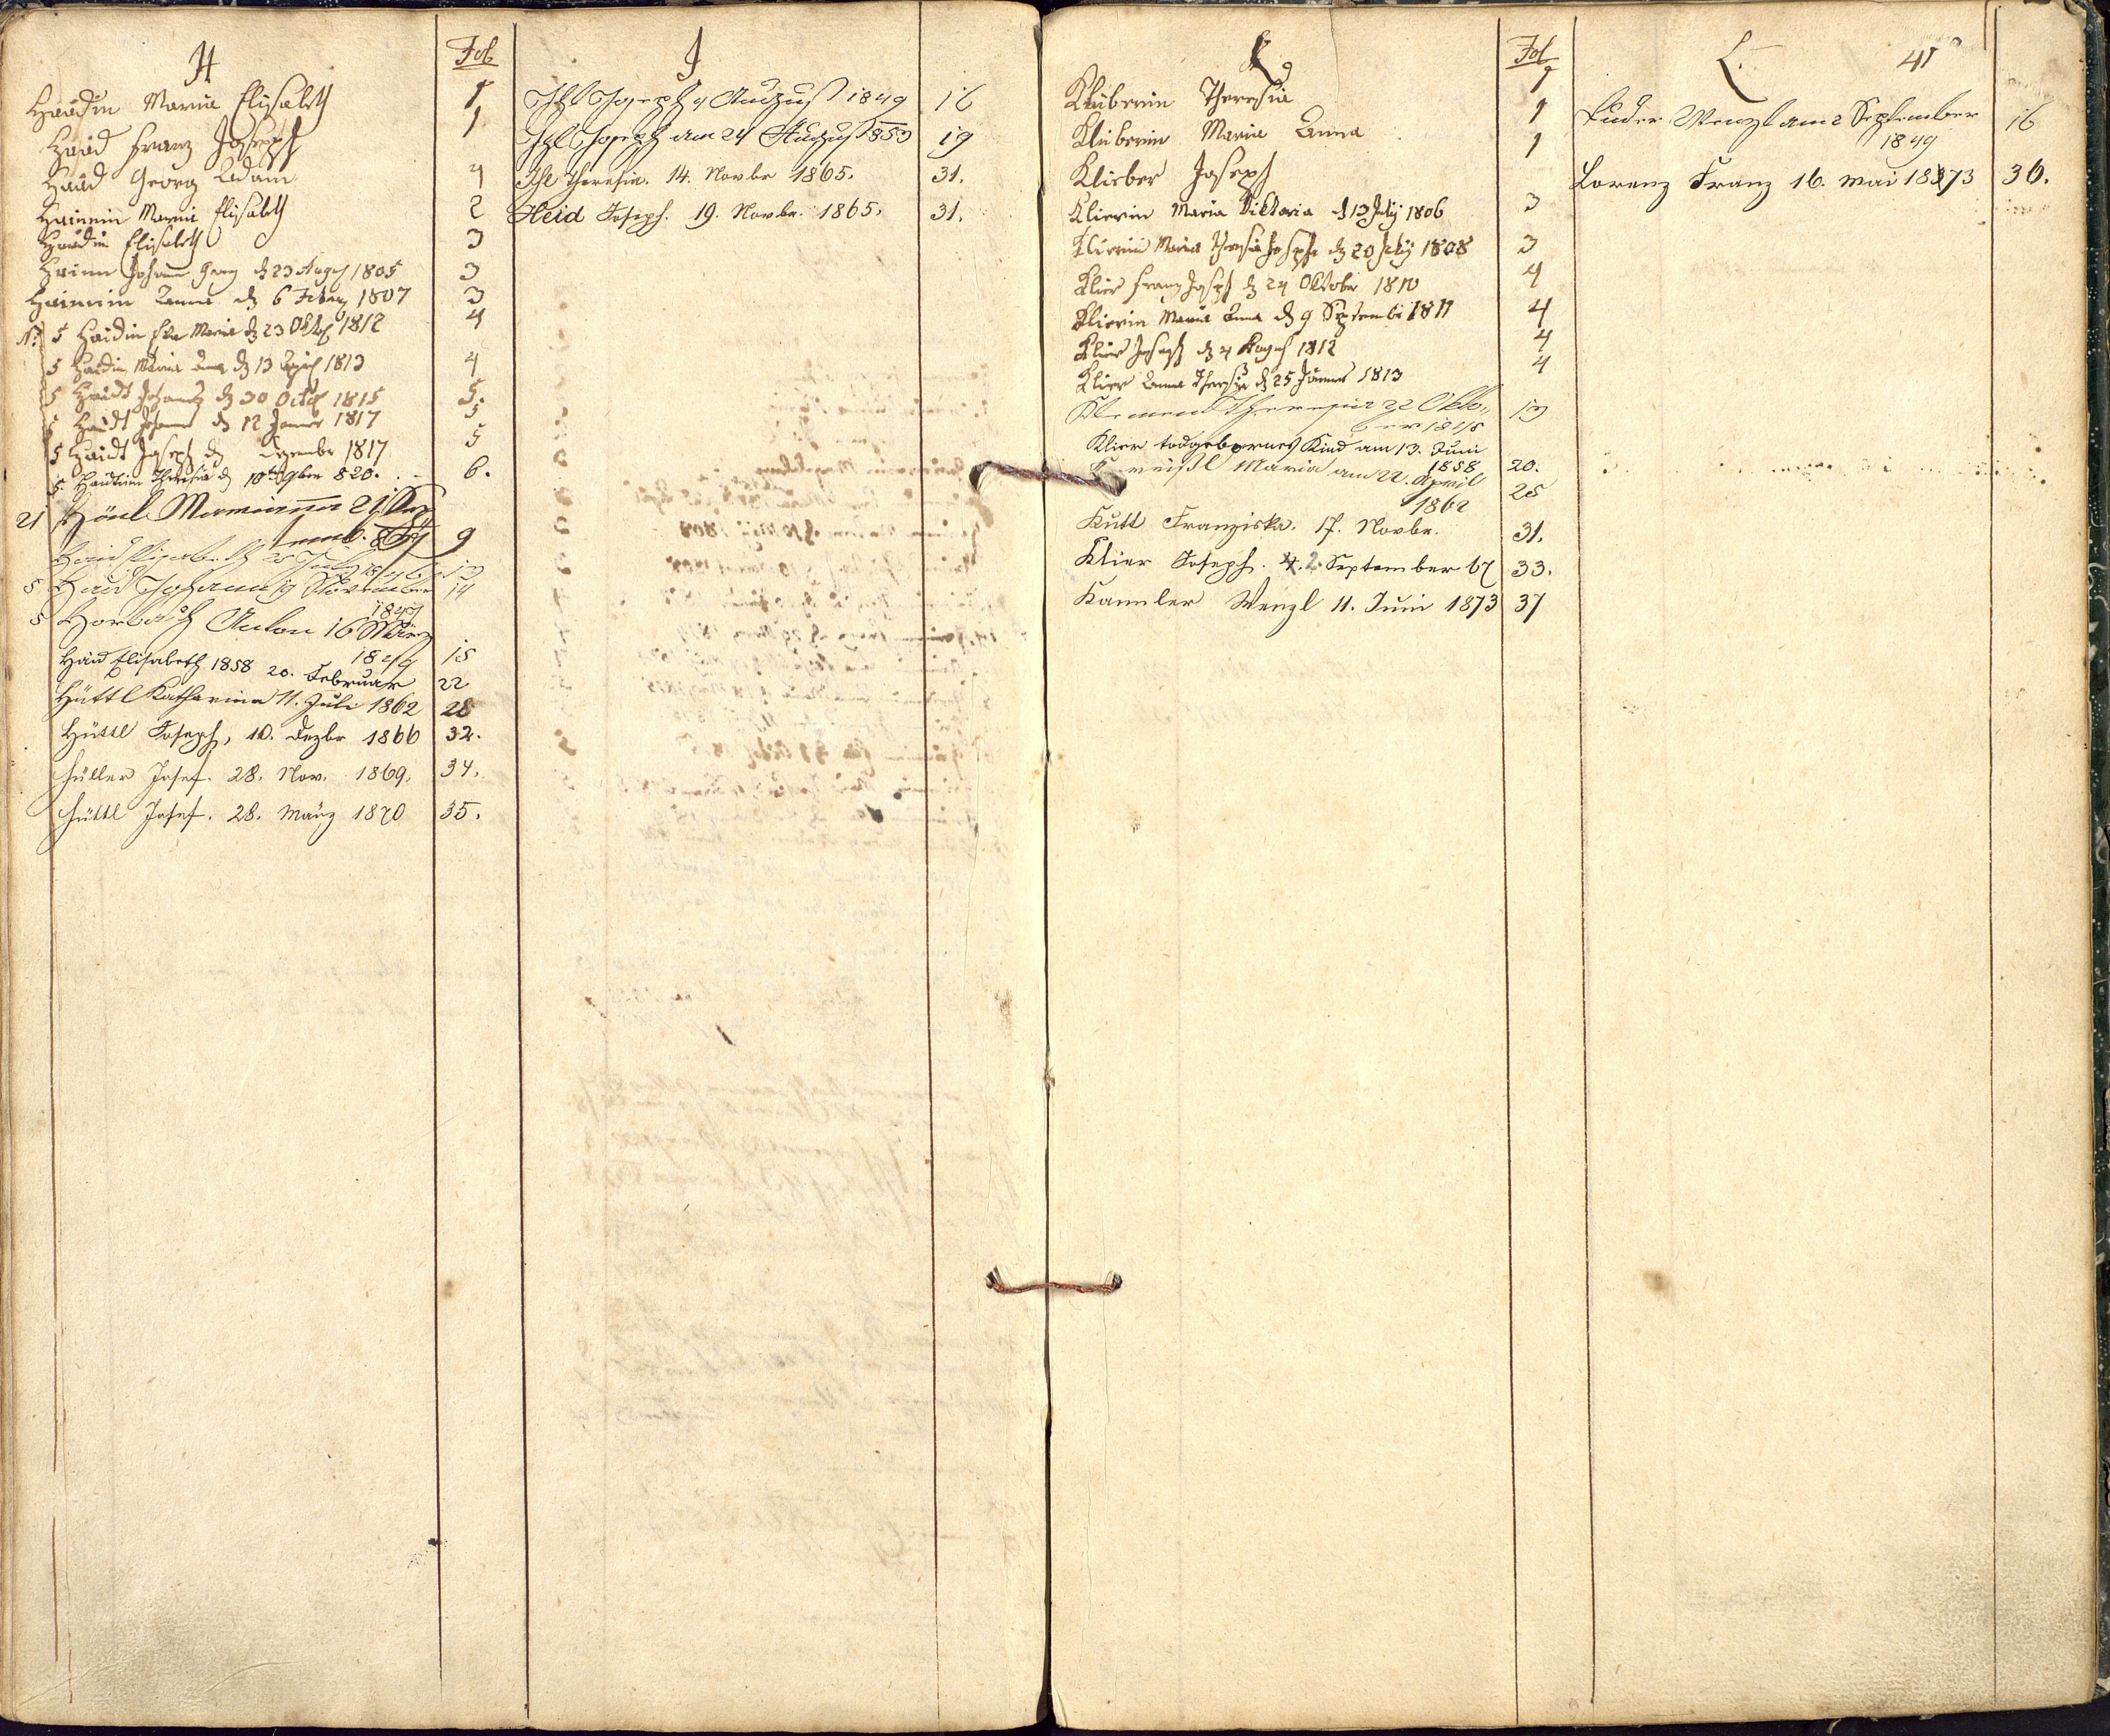 H
Fol
Haidin Maria Elisabeth 1
Haid Franz Joseph 1
Haid Georg Adam 1
Hainin Maria Elisabeth 2
Haidin Elisabeth 3
Hainn Johann Georg d 23 August 1805 3
Hainnin Anna d 6 1807 3
No 5 Haidin Maria d 23 Oktob 1812 4
5 Haidin Maria Anna d 13 April 1813 4
5 Haidt Johann d 30 Octob 1815 5
5 Haidt Johann d 12 Januar 1817 5
5 Haidt Joseph d Dezember 1817 5
5 Haidtin Theresia d 10 9ber 820. 6.
21 Marianna 21. 9
Haid Elisabeth 20 July 13
5 Haid Johann 19 November 14
1847
5 Horbasch Anton 16 März
1849 15
Haid Elisabeth 1858 20. Februar 22
Hüttl Katharina 11. Juli 1862 28
Hüttl Joseph, 10. Dezbr 1866 32.
Hüller Josef. 28. Nov. 1869. 34.
Hüttl Josef. 28. März 1870 35.
J
Ihl Joseph 4 August 1849 16
Ihl Joseph am 24 August 853 19
Ihl Theresia. 14. Novbr 1865. 31.
Heid Joseph. 19. Novbr. 1865. 31.
K
Fol
Kliberin Theresia 1
Kliberin Maria Anna 1
Klieber Joseph 1
Klierin Maria Viktoria d 13 July 1806 3
Klierin Maria Theresia Josepha d 20 July 1808 3
Klier Franz Joseph d 24 Oktober 1810 4
Klierin Maria Anna d 9 September 1811 4
Klier Joseph d 4 August 1812 4
Klier Anna Theresia d 25 Jänner 1813 4
Klement Theresia 22 Okto„ 13
ber 1845
Klier todgebornes Kind am 13. Juni
1858 20.
Maria am 22. April
1862 25
Kutt Franziska. 17. Novbr. 31.
Klier Joseph. 2. September 67 33.
Kannler Wenzl 11. Juni 1873 37
L. 41
Luder Wenzl am 2 September
1849 16
Lorenz Franz 16. Mai 1873 36.